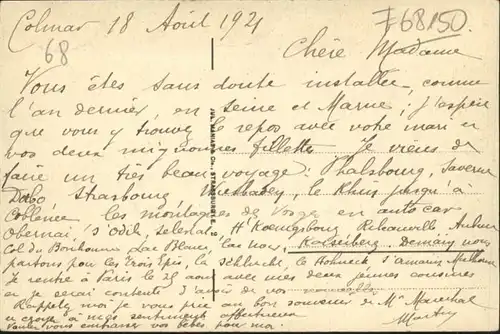 Colmar 18 Août 1921
F68150.
68
Chère Madame
Vous êtes sans doute installée, comme
l'an dernier, en Seine et Marne; j'espère
que vous y trouvez le repos avec votre mari et
vos deux mignonnes fillettes. Je viens de
faire un très beau voyage: Phalsbourg, Saverne
Dabo, Strasbourg Wiesbaden, le Rhin jusqu'à
Coblence les montagnes des Vosges en auto car
Obernai, St Odile, Selestat Ht Koenigsbourg Ribeauvillé
Col du Bonhomme Lac Blanc, Kaiserberg. Demain nous
partons pour les Trois Epis, la Schlucht, le Hohneck St Amarin Mulhouse
Je rentre à Paris le 25 août avec mes deux jeunes cousines
et je serai contente d'avoir de vos nouvelles
Rappelez moi je vous prie au bon souvenir de Mr Marechal
et croyez à mes sentiments affectueux
Voulez vous embrasser vos bébés pour moi.